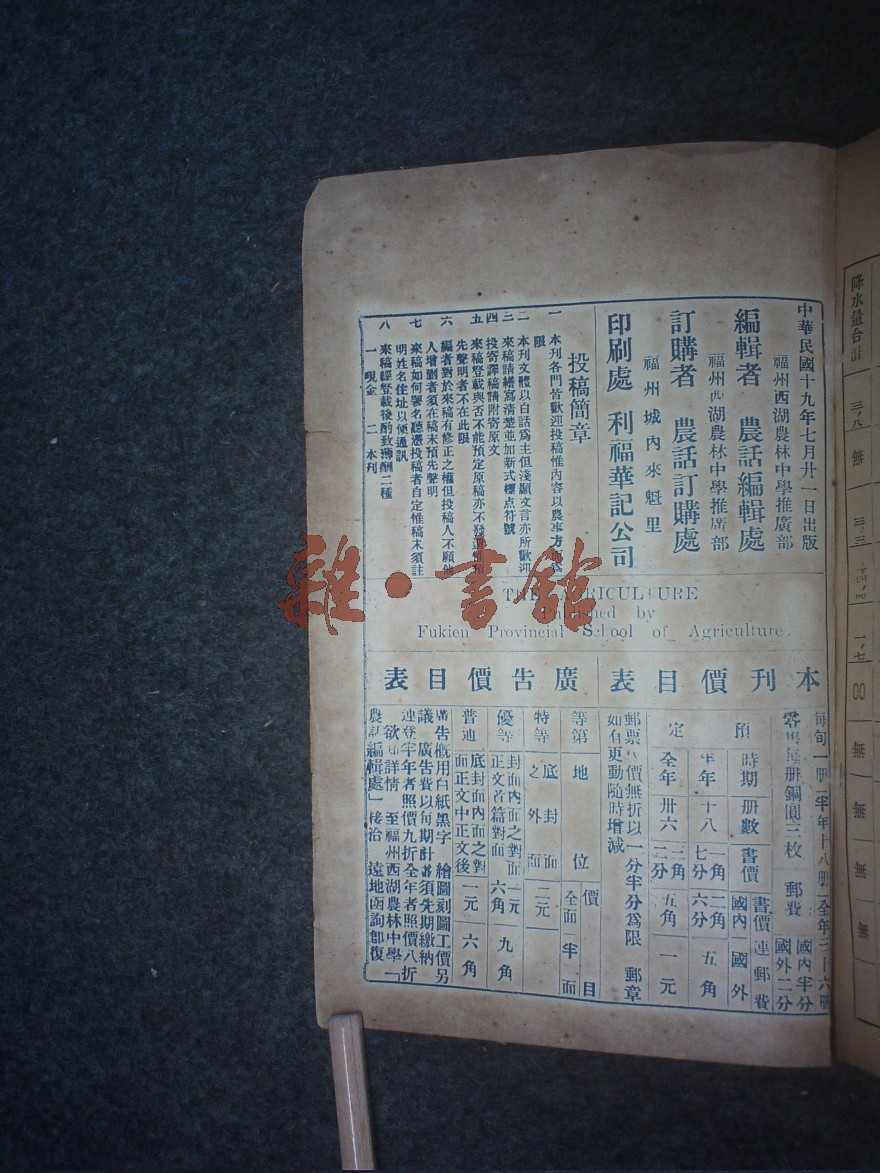 中華民國十九年七月廿一日出版
福州西湖農林中學推廣部
編輯者　農話編輯處
福州西湖農林中學推廣部
訂購者　農話訂購處
福州城內來魁里
印刷處　利福華記公司
投稿簡章
一　本刊各門皆歡迎投稿惟內容以農事方面為
限
二　本刊文體以白話爲主但淺顯文言亦所歡迎
三　來稿請繕寫清楚並加新式標点符號
四　投寄譯稿請附寄原文
五　來稿登載與否不能預定原稿亦不發還惟預
先聲明者不在此限
六　編者對於來稿有修正之權但投稿人不願他
人增删者須在稿末預先聲明
七　來稿如何署名聽憑投稿者自定惟稿末須註
明姓名住址以便通訊
八　來稿經登載後酌致薄酬二種
一　現金　二　本刊
THE AGRICULTURE
Published by
Fukien Provincial School of Agriculture.
本刊價目表
每旬一册半年十八册全年三十六册
零售每册銅圓三枚　郵費　國內半分　國外二分
預定
時期　册數　書價　書價連郵費　國內　國外
半年　十八　一角七分　二角六分　五角
全年　卅六　三角二分　五角　一元
郵票代價無折以一分半分爲限　郵章
如有更動隨時增減
廣告價目表
等第　地位　價目　全面　半面
特等　底封面之外面　二元
優等　封面內面之對面　正文首篇對面　一元六角　九角
普通　底封面內面之對面正文中正文後　一元　六角
廣告概用白紙黑字　繪圖刻圖工價另
議　廣告費以每期計算須先期繳納
連登半年者照價九折全年者照價八折
欲知詳情　至福州西湖農林中學「
農話編輯處」接洽　遠地函詢卽復
降水量合計
三.八
無
三.三
一.七
無
無
無
無
雜·書館